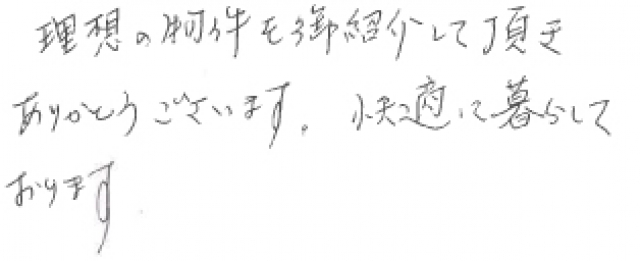 理想の物件を御紹介して頂き
ありがとうございます。快適に暮らして
おります